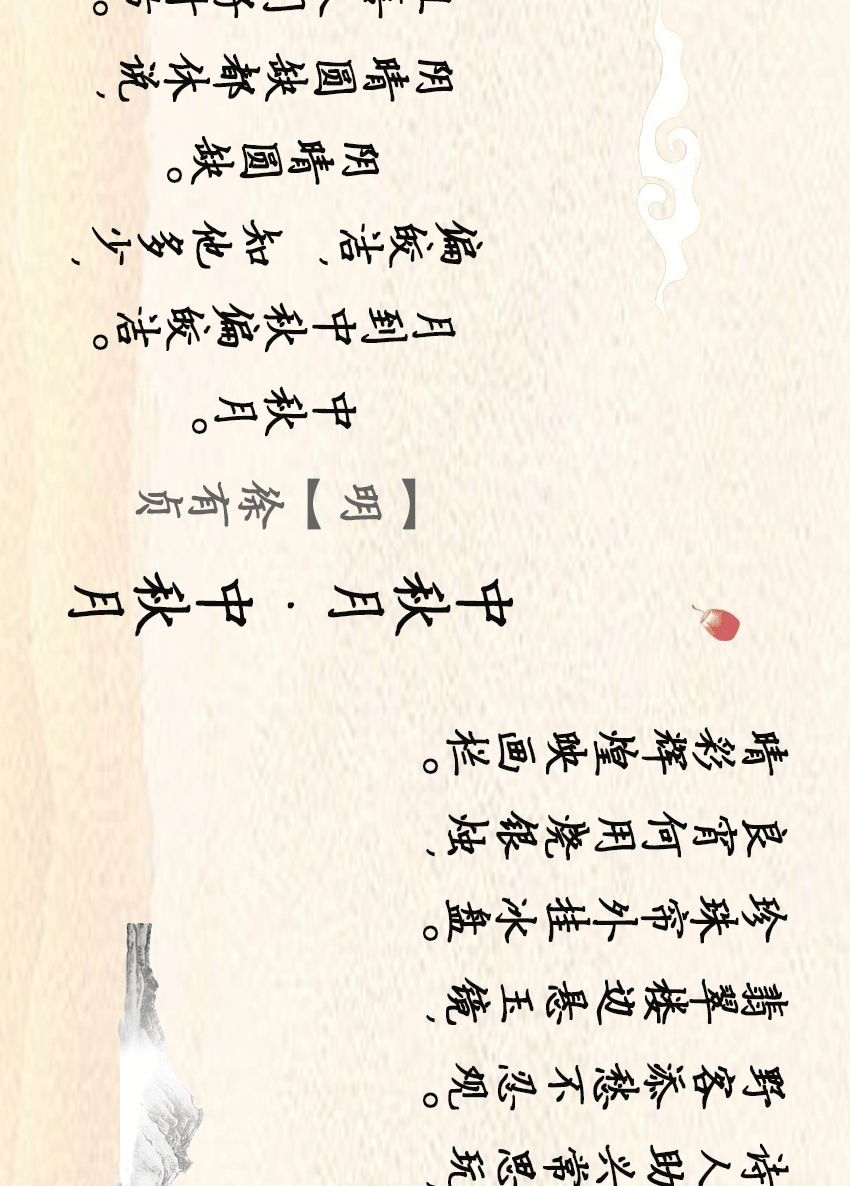 诗人助兴常思玩，
野客添愁不忍观。
翡翠楼边悬玉镜，
珍珠帘外挂冰盘。
良宵何用烧银烛，
晴彩辉煌映画栏。
中秋月·中秋月
【明】徐有贞
中秋月。
月到中秋偏皎洁。
偏皎洁，知他多少，
阴晴圆缺。
阴晴圆缺都休说，